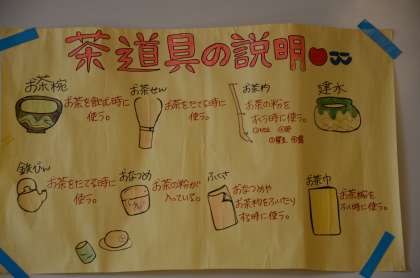 茶道具の説明
お茶碗
お茶を飲む時に
使う。
お茶せん
お茶をたてる時に
使う。
お茶杓
お茶の粉を
すくう時に使う。
建水
鉄びん
お茶をたてる時に
使う。
おなつめ
お茶の粉が
入っている。
ふくさ
おなつめや
お茶杓をふいたり
する時に使う。
お茶巾
お茶碗を
ふく時に使う。